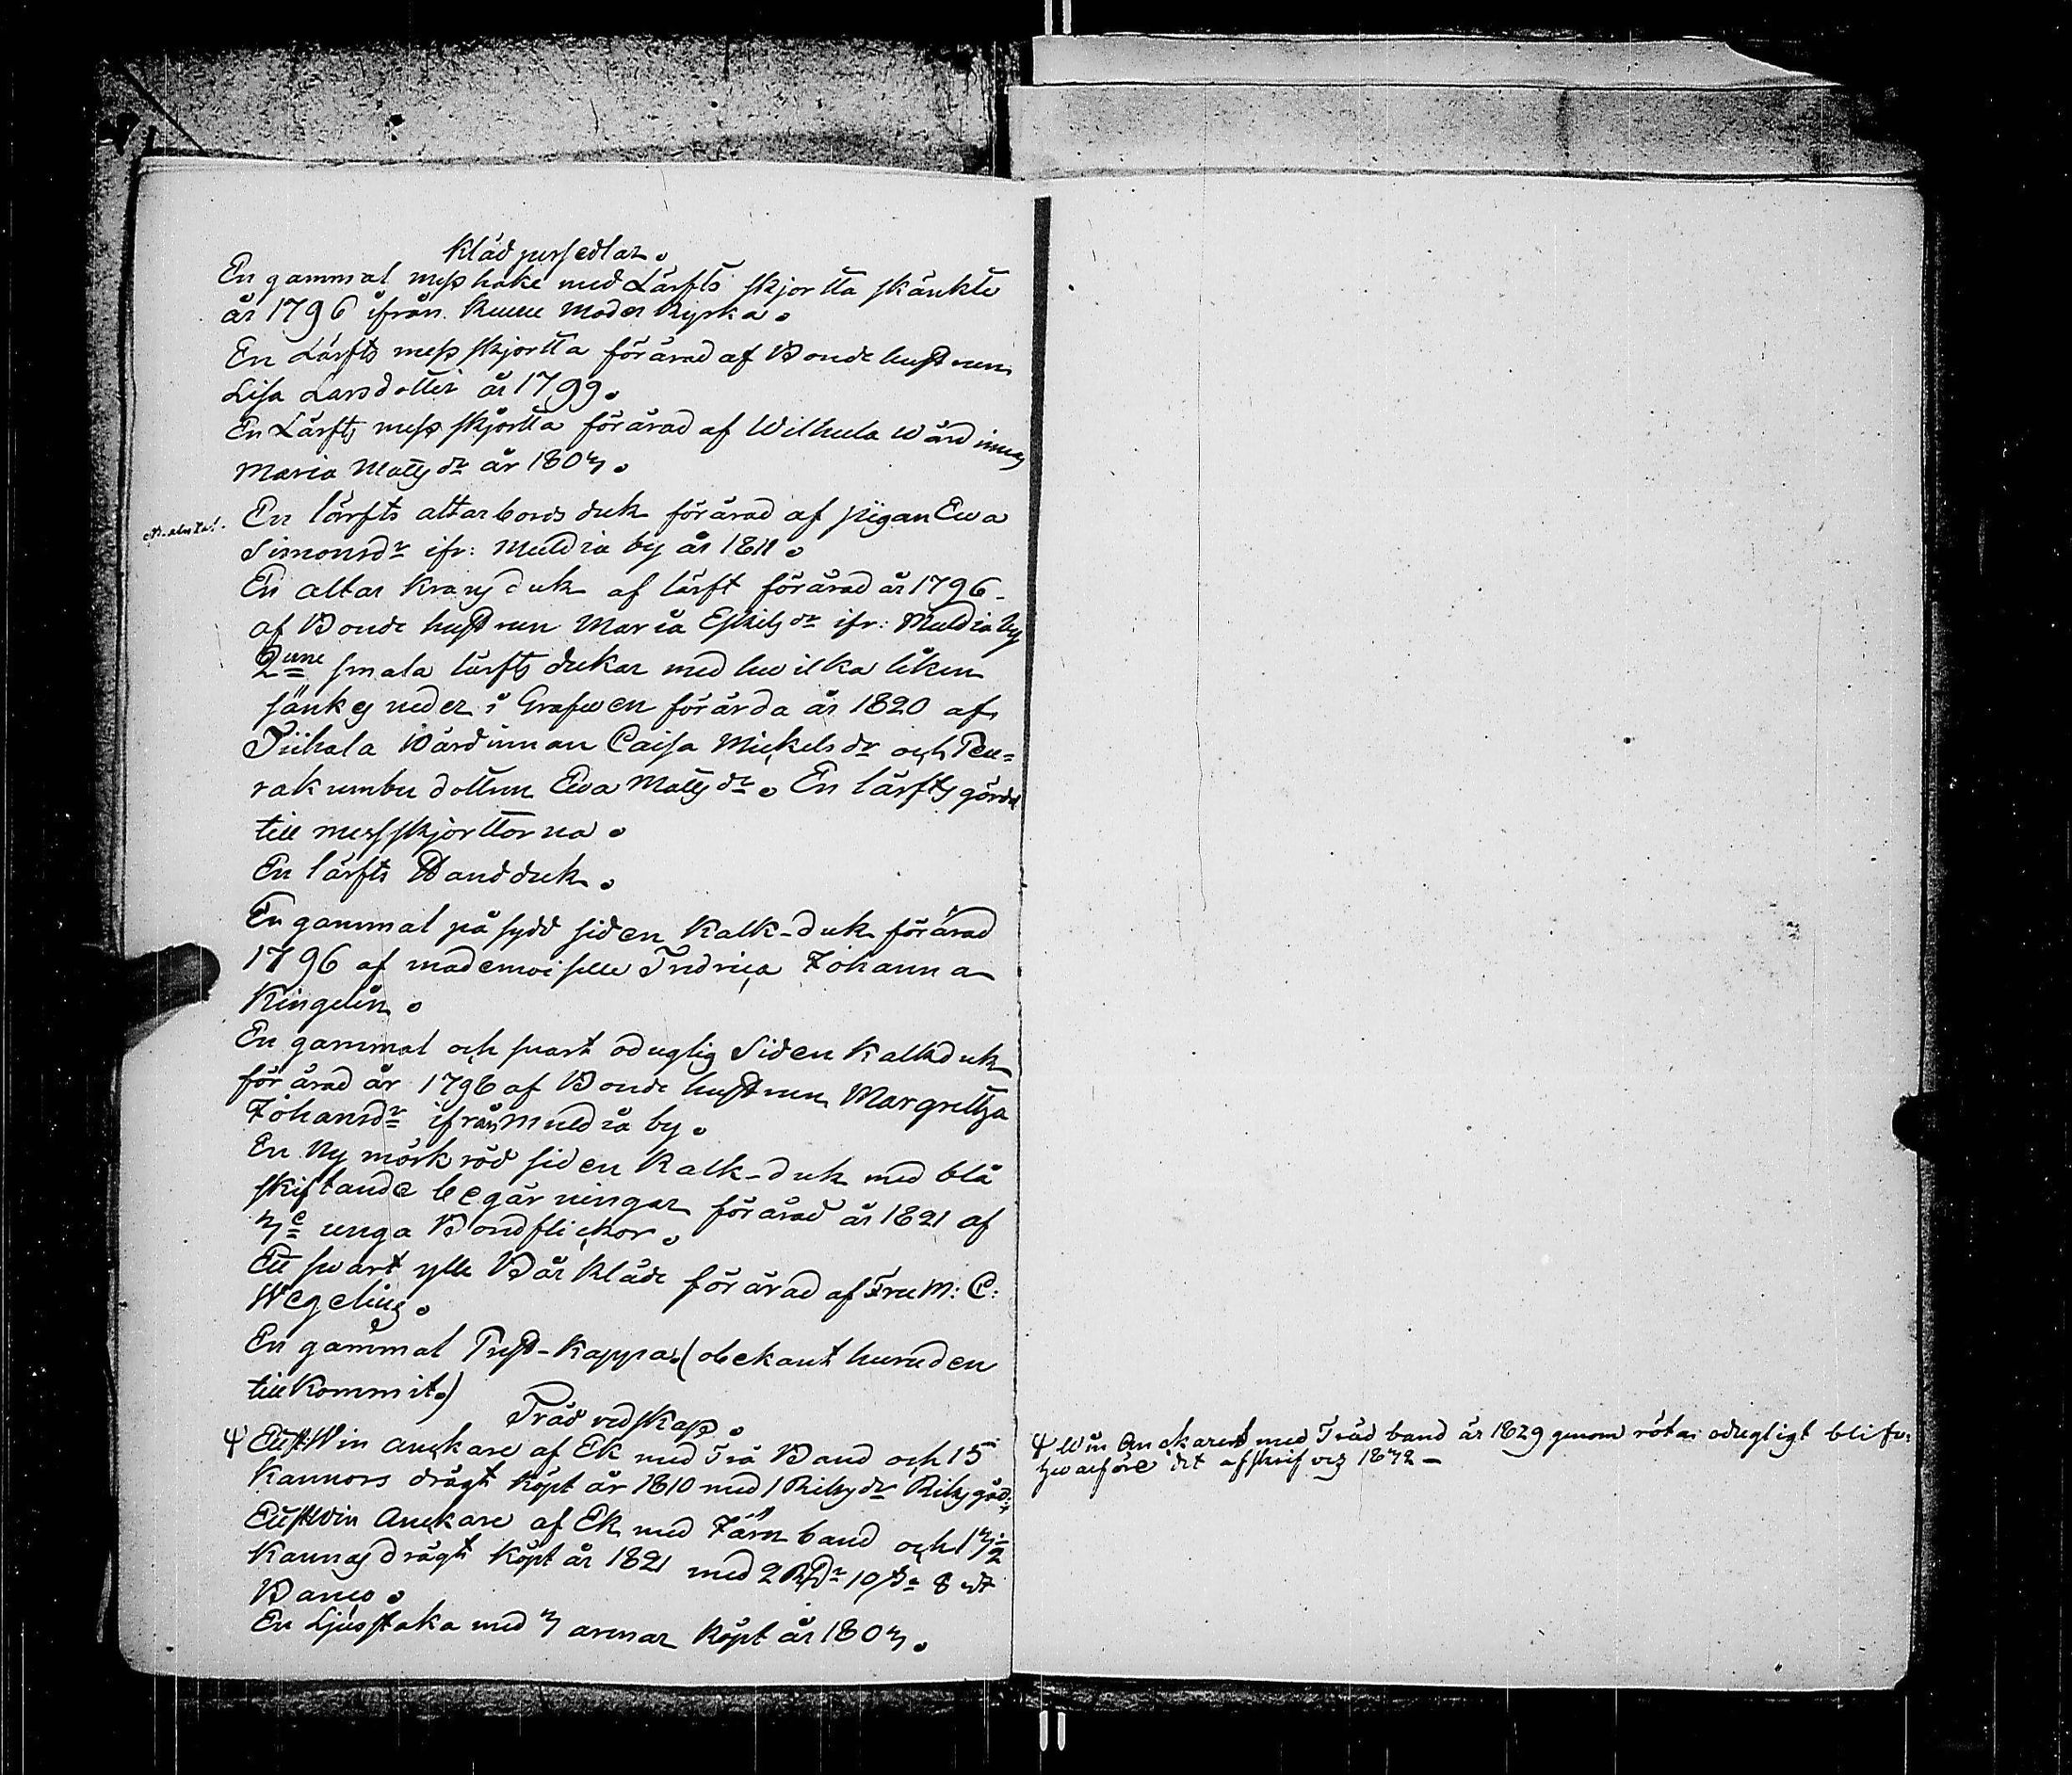 Kläd persedlar.
En gammal messhake med Lärfts skjortta skänkte
år 1796 ifrån Moder Kyrka.
En Lärfts mess skjortta förärad af Bonde hustrun
Lisa Larsdotter år 1799.
En Lärfts mess skjortta förärad af Wilhula wärdinnan
Maria Matts dr år 1803.
En lärfts altarbords duk förärad af pigan Ewa
Simonsdr ifr: Muldia by år 1811.
En altar Krans duk af lärft förärad år 1796
af Bonde hustrun Maria Eskils dr ifr: Muldia by
2ne smala lärfts dukar med hwilka liken
sänkes neder i Grafwen förärda år 1820 af
Tiihala Wärdinnan Caisa Mickels dr och Peu=
rakumbu dottren Ewa Matts dr. En lärfts gördel
till messskjorttorna.
En lärfts Handduk.
En gammal på sydd siden Kalk-duk förärad
1796 af mademoiselle Fredrica Johanna
Kingelin.
En gammal och snart oduglig Siden Kalkduk
förärad år 1796 af Bonde hustrun Margretha
Johansdr ifrån Muldia by.
En Ny mörk röd siden Kalk-duk med blå
skiftande begärningar förärad år 1821 af
3e unga Bondflickor.
Ett swart ylle Bårkläde förärad af Fru M: C:
Wegelius.
En gammal Prest-Kappa. (obekant huru den
tillkommit.)
Träd redskap.
Ψ Ett Win anckare af Ek med Trä Band och 15
Kannors drägt köpt år 1810 med 1 Riksdr Riksgäld:
Ett Win Anckare af Ek med Järn band och 13½
Kannas drägt köpt år 1821 med 2 RDr 10 s. 8
Banco.
En Ljusstaka med 3 armar köpt år 1803.
Ψ Win Anckaret med Träd band är 1829 genom röta odugligt blifw:
hwarföre det afskrifves 1842 —